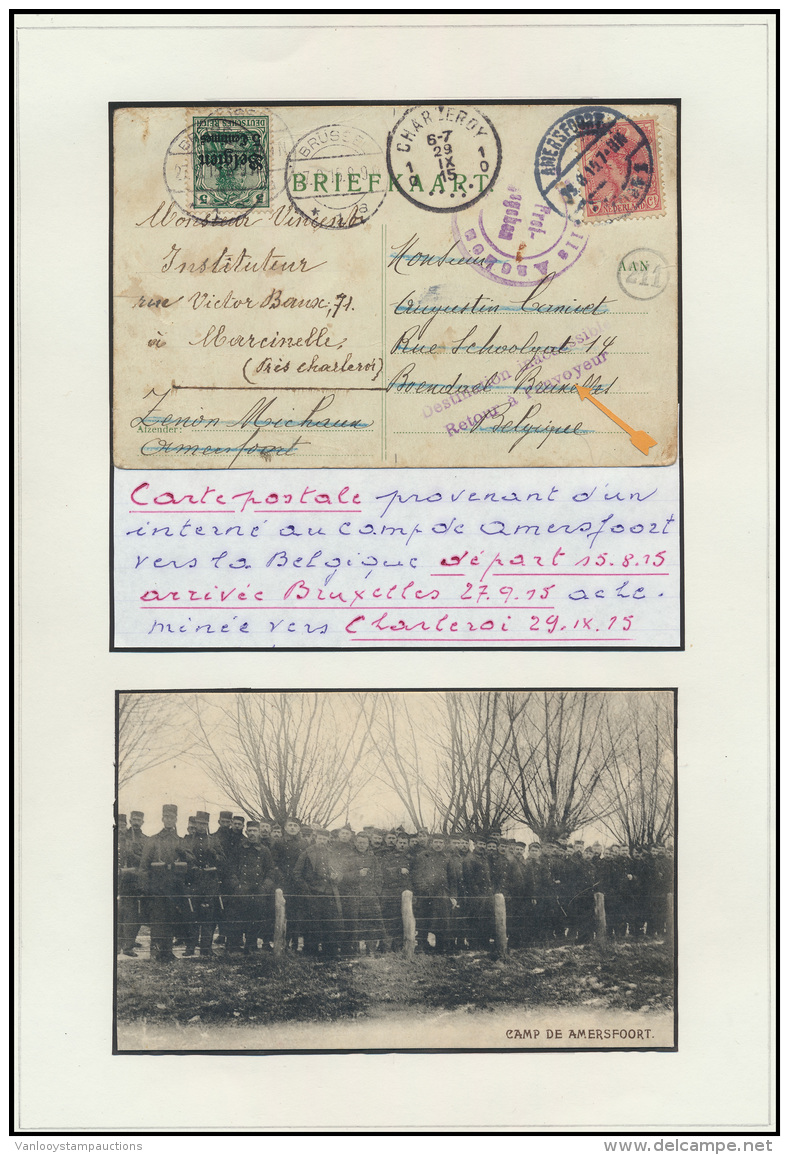 BRIEFKAART
CHARLEROY
6-7
29
IX
15
AMERSFOORT
NEDERLAND
Belgien
5 Centimes
AAN
211
Monsieur Vincent
Instituteur
rue Victor Baux, 71.
à Marcinelle
(Près charleroi)
Zenon Michaux
Afzender:
Amersfoort
Monsieur
Augustin
Rue Schoolgat 14
Boendael Bruxelles
Belgique
Destination inaccessible
Retour à l'envoyeur
Carte postale provenant d'un
interné au camp de amersfoort
vers la Belgique départ 15.8.15
arrivée Bruxelles 27.9.15 ache.
minée vers Charleroi 29.IX.15
CAMP DE AMERSFOORT.
Vanlooystampauctions